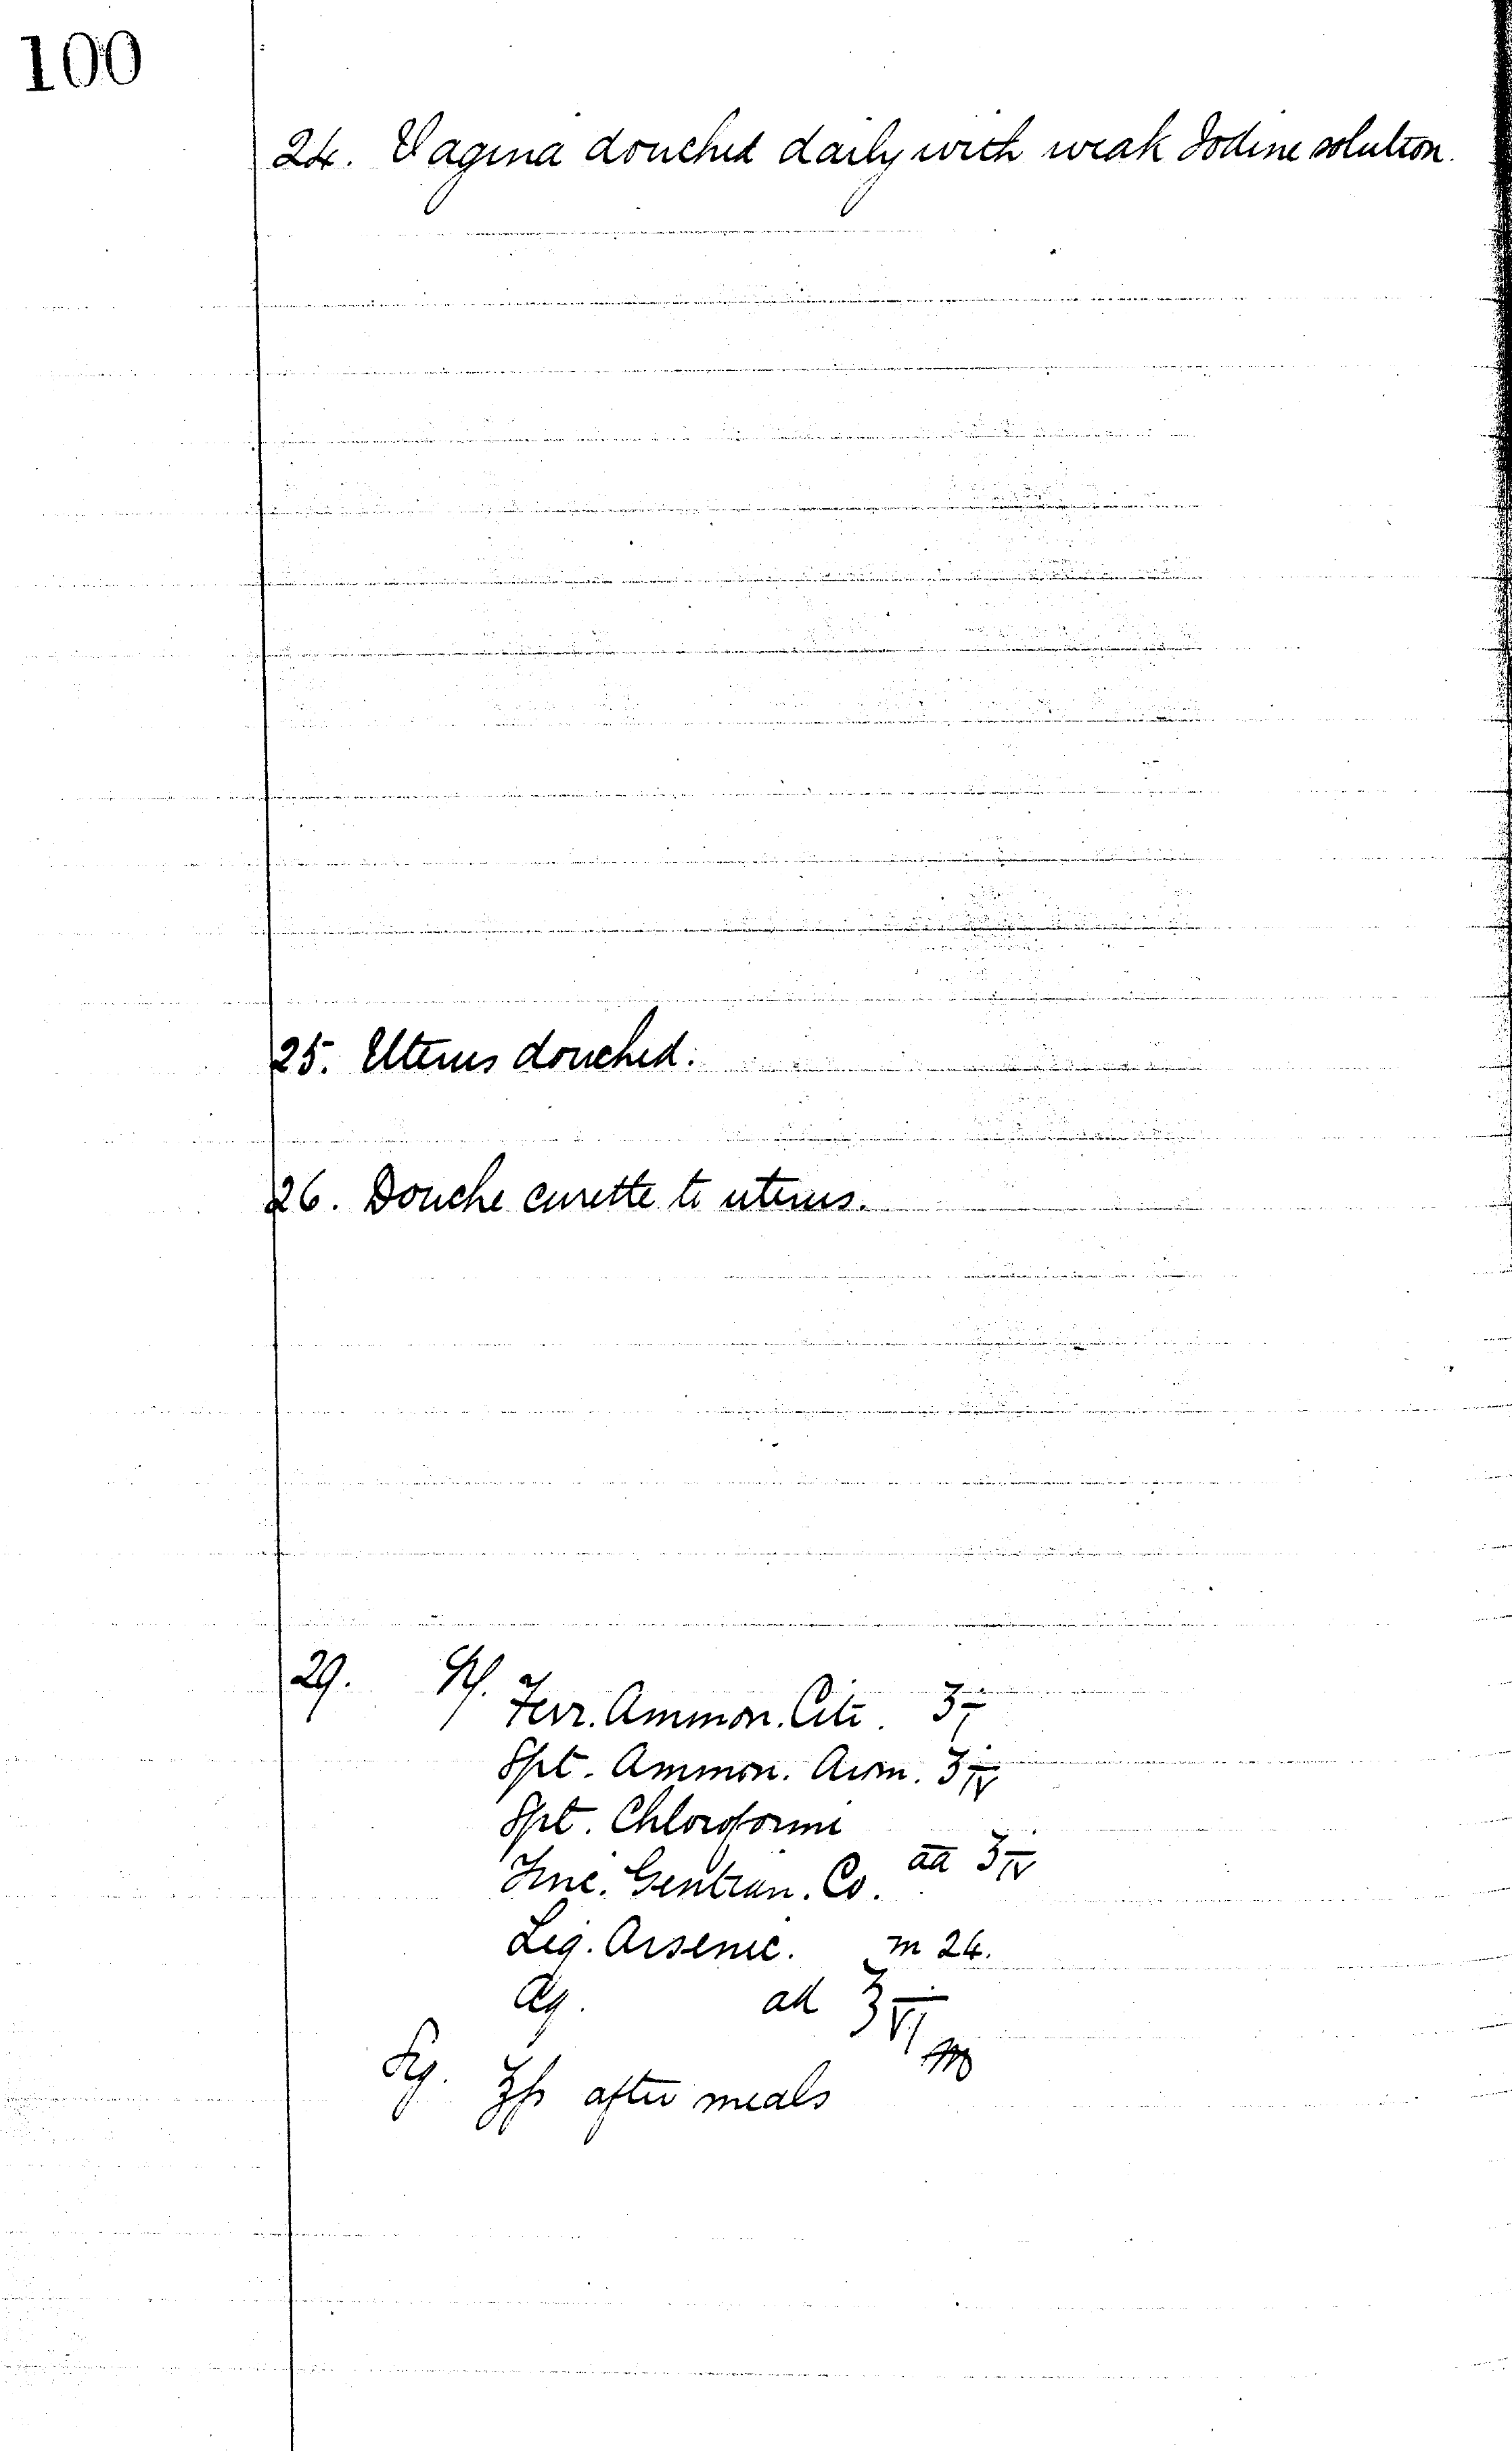 100
24. Vagina douched daily with weak Iodine solution.
25. Uterus douched.
26. Douche curette to uterus.
29. ℞.
Ferr. Ammon. Cit. ʒ i
Spt. Ammon. Arom. ʒ iv
Spt. Chloroformi
Tinc. Gentian. Co. aa ʒ iv
Liq. Arsenic. m 24.
Aq. ad ℥ vi
Sig. ℥ss after meals